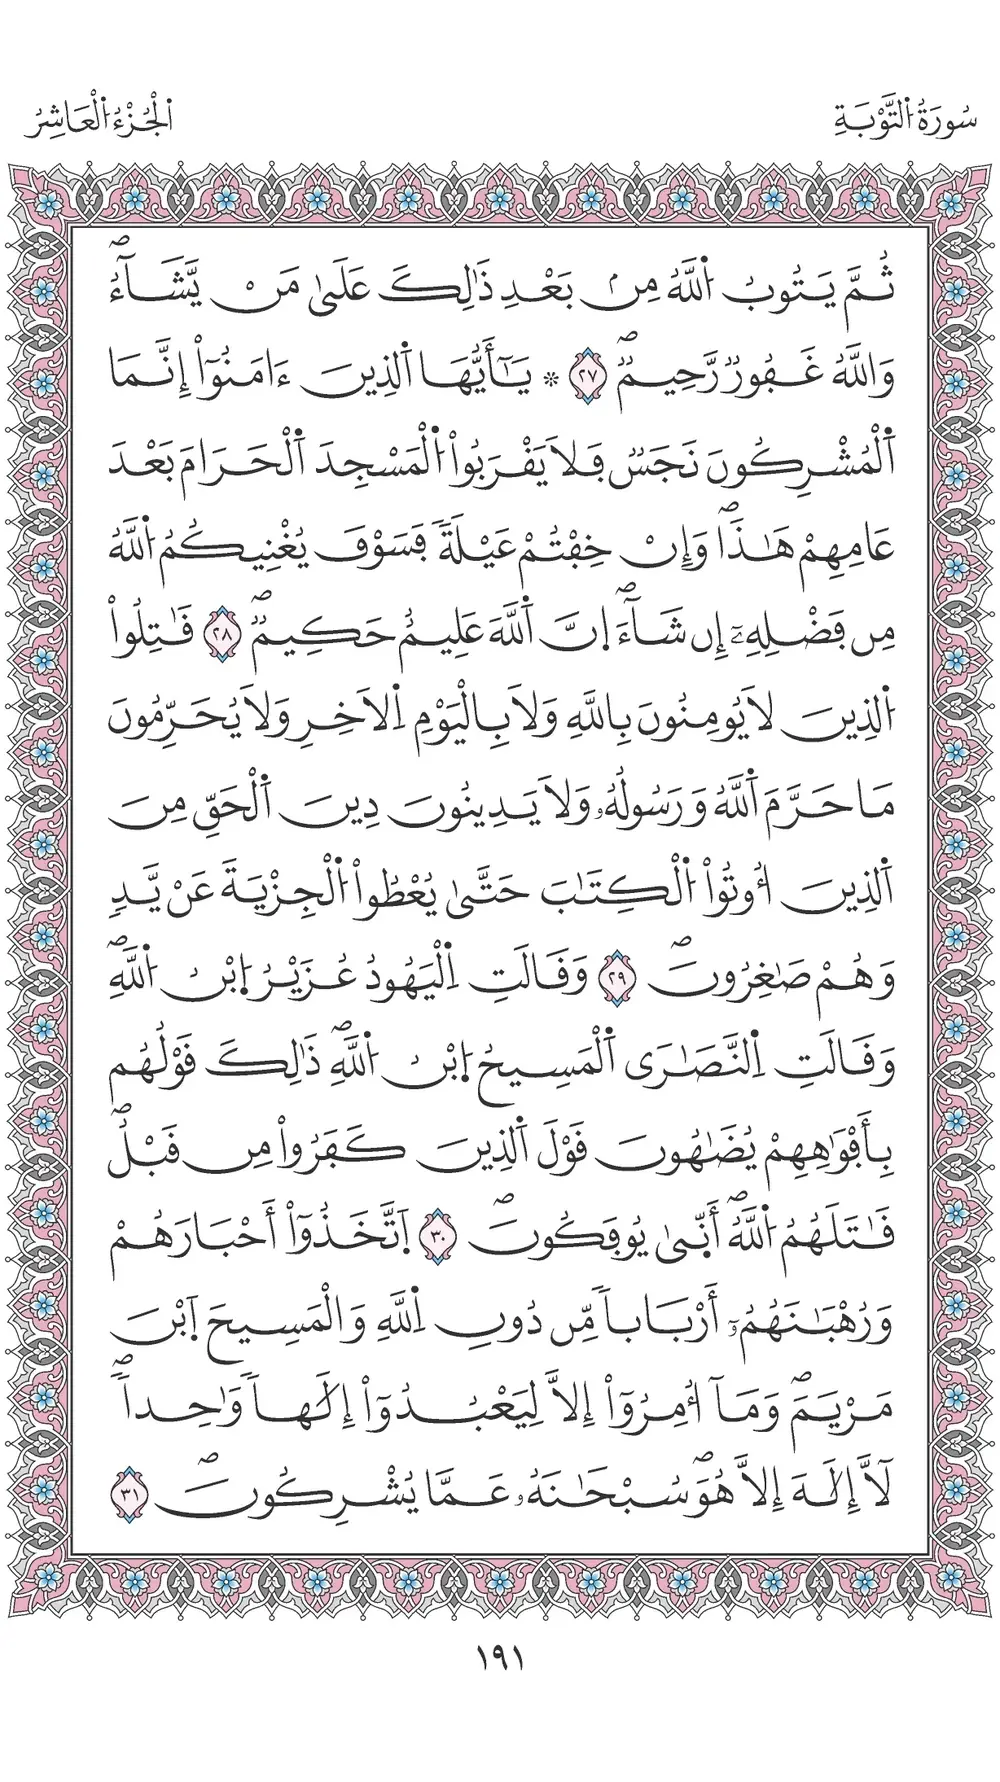 سُورَةُ التَّوْبَةِ
الْجُزْءُ الْعَاشِرُ
ثُمَّ يَتُوبُ اُ۬للَّهُ مِنۢ بَعْدِ ذَٰلِكَ عَلَىٰ مَنْ يَّشَآءُۖ
وَاللَّهُ غَفُورٞ رَّحِيمٞۖ ٢٧ ۞ يَـٰٓأَيُّهَا اَ۬لذِينَ ءَامَنُوٓاْ إِنَّمَا
اَ۬لْمُشْرِكُونَ نَجَسٞ فَلَا يَقْرَبُواْ اُ۬لْمَسْجِدَ اَ۬لْحَرَامَ بَعْدَ
عَامِهِمْ هَـٰذَاۖ وَإِنْ خِفْتُمْ عَيْلَةٗ فَسَوْفَ يُغْنِيكُمُ اُ۬للَّهُ
مِن فَضْلِهِۦٓ إِن شَآءَۖ اِ۪نَّ اَ۬للَّهَ عَلِيمٌ حَكِيمٞۖ ٢٨ قَـٰتِلُواْ
اُ۬لذِينَ لَا يُومِنُونَ بِاللَّهِ وَلَا بِالْيَوْمِ اِ۬لَاخِرِ وَلَا يُحَرِّمُونَ
مَا حَرَّمَ اَ۬للَّهُ وَرَسُولُهُۥ وَلَا يَدِينُونَ دِينَ اَ۬لْحَقِّ مِنَ
اَ۬لذِينَ أُوتُواْ اُ۬لْكِتَـٰبَ حَتَّىٰ يُعْطُواْ اُ۬لْجِزْيَةَ عَنْ يَّدٖ
وَهُمْ صَـٰغِرُونَۖ ٢٩ وَقَالَتِ اِ۬لْيَهُودُ عُزَيْرُ اُ۪بْنُ اُ۬للَّهِۖ
وَقَالَتِ اِ۬لنَّصَـٰرَى اَ۬لْمَسِيحُ اُ۪بْنُ اُ۬للَّهِۖ ذَٰلِكَ قَوْلُهُم
بِأَفْوَٰهِهِمْ يُضَـٰهُونَ قَوْلَ اَ۬لذِينَ كَفَرُواْ مِن قَبْلُۖ
قَـٰتَلَهُمُ اُ۬للَّهُۖ أَنّ۪ىٰ يُوفَكُونَۖ ٣٠ اَ۪تَّخَذُوٓاْ أَحْبَارَهُمْ
وَرُهْبَـٰنَهُمُۥٓ أَرْبَاباٗ مِّن دُونِ اِ۬للَّهِ وَالْمَسِيحَ اَ۪بْنَ
مَرْيَمَۖ وَمَآ أُمِرُوٓاْ إِلَّا لِيَعْبُدُوٓاْ إِلَـٰهاٗ وَٰحِداٗۖ
لَّآ إِلَـٰهَ إِلَّا هُوَۖ سُبْحَـٰنَهُۥ عَمَّا يُشْرِكُونَۖ ٣١
١٩١